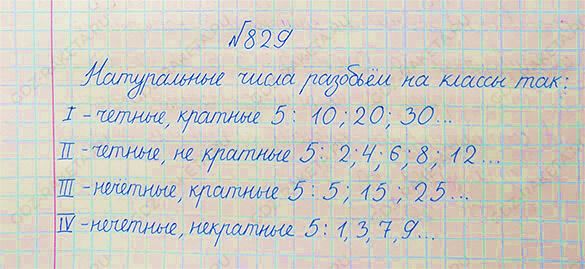 №829
Натуральные числа разобьём на классы так:
I - четные, кратные 5: 10; 20; 30...
II - четные, не кратные 5: 2; 4; 6; 8; 12...
III - нечётные, кратные 5: 5; 15; 25...
IV - нечетные, некратные 5: 1, 3, 7, 9...